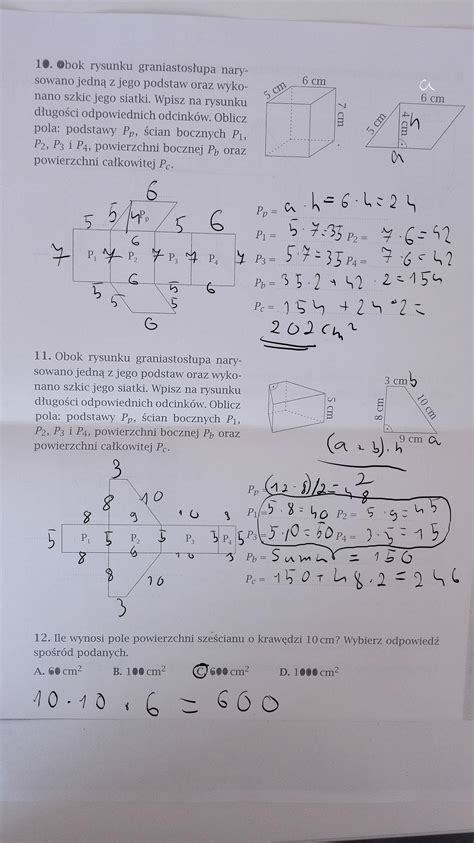 10. Obok rysunku graniastosłupa nary-
sowano jedną z jego podstaw oraz wyko-
nano szkic jego siatki. Wpisz na rysunku
długości odpowiednich odcinków. Oblicz
pola: podstawy Pp, ścian bocznych P1,
P2, P3 i P4, powierzchni bocznej Pb oraz
powierzchni całkowitej Pc.
5 cm 6 cm 7 cm
a
6 cm
5 cm 4 cm h
a
6
5 5 4 Pp 5 6
7 P1 7 P2 7 P3 7 P4 7
5 6 5 6
5 5
6
Pp = a · h = 6 · 4 = 24
P1 = 5 · 7 = 35 P2 = 7 · 6 = 42
P3 = 5 · 7 = 35 P4 = 7 · 6 = 42
Pb = 35 · 2 + 42 · 2 = 154
Pc = 154 + 24 · 2 =
202 cm²
11. Obok rysunku graniastosłupa nary-
sowano jedną z jego podstaw oraz wyko-
nano szkic jego siatki. Wpisz na rysunku
długości odpowiednich odcinków. Oblicz
pola: podstawy Pp, ścian bocznych P1,
P2, P3 i P4, powierzchni bocznej Pb oraz
powierzchni całkowitej Pc.
5 cm
3 cm b
8 cm 10 cm
9 cm a
(a + b) · h
2
3
8 10
8 9 10 3
5 P1 5 P2 5 P3 5 P4 5
8 9 10 3
8 10
3
Pp = (12 · 8)/2 = 48
P1 = 5 · 8 = 40 P2 = 5 · 9 = 45
P3 = 5 · 10 = 50 P4 = 3 · 5 = 15
Pb = Suma = 150
Pc = 150 + 48 · 2 = 246
12. Ile wynosi pole powierzchni sześcianu o krawędzi 10 cm? Wybierz odpowiedź
spośród podanych.
A. 60 cm² B. 100 cm² C. 600 cm² D. 1000 cm²
10 · 10 · 6 = 600